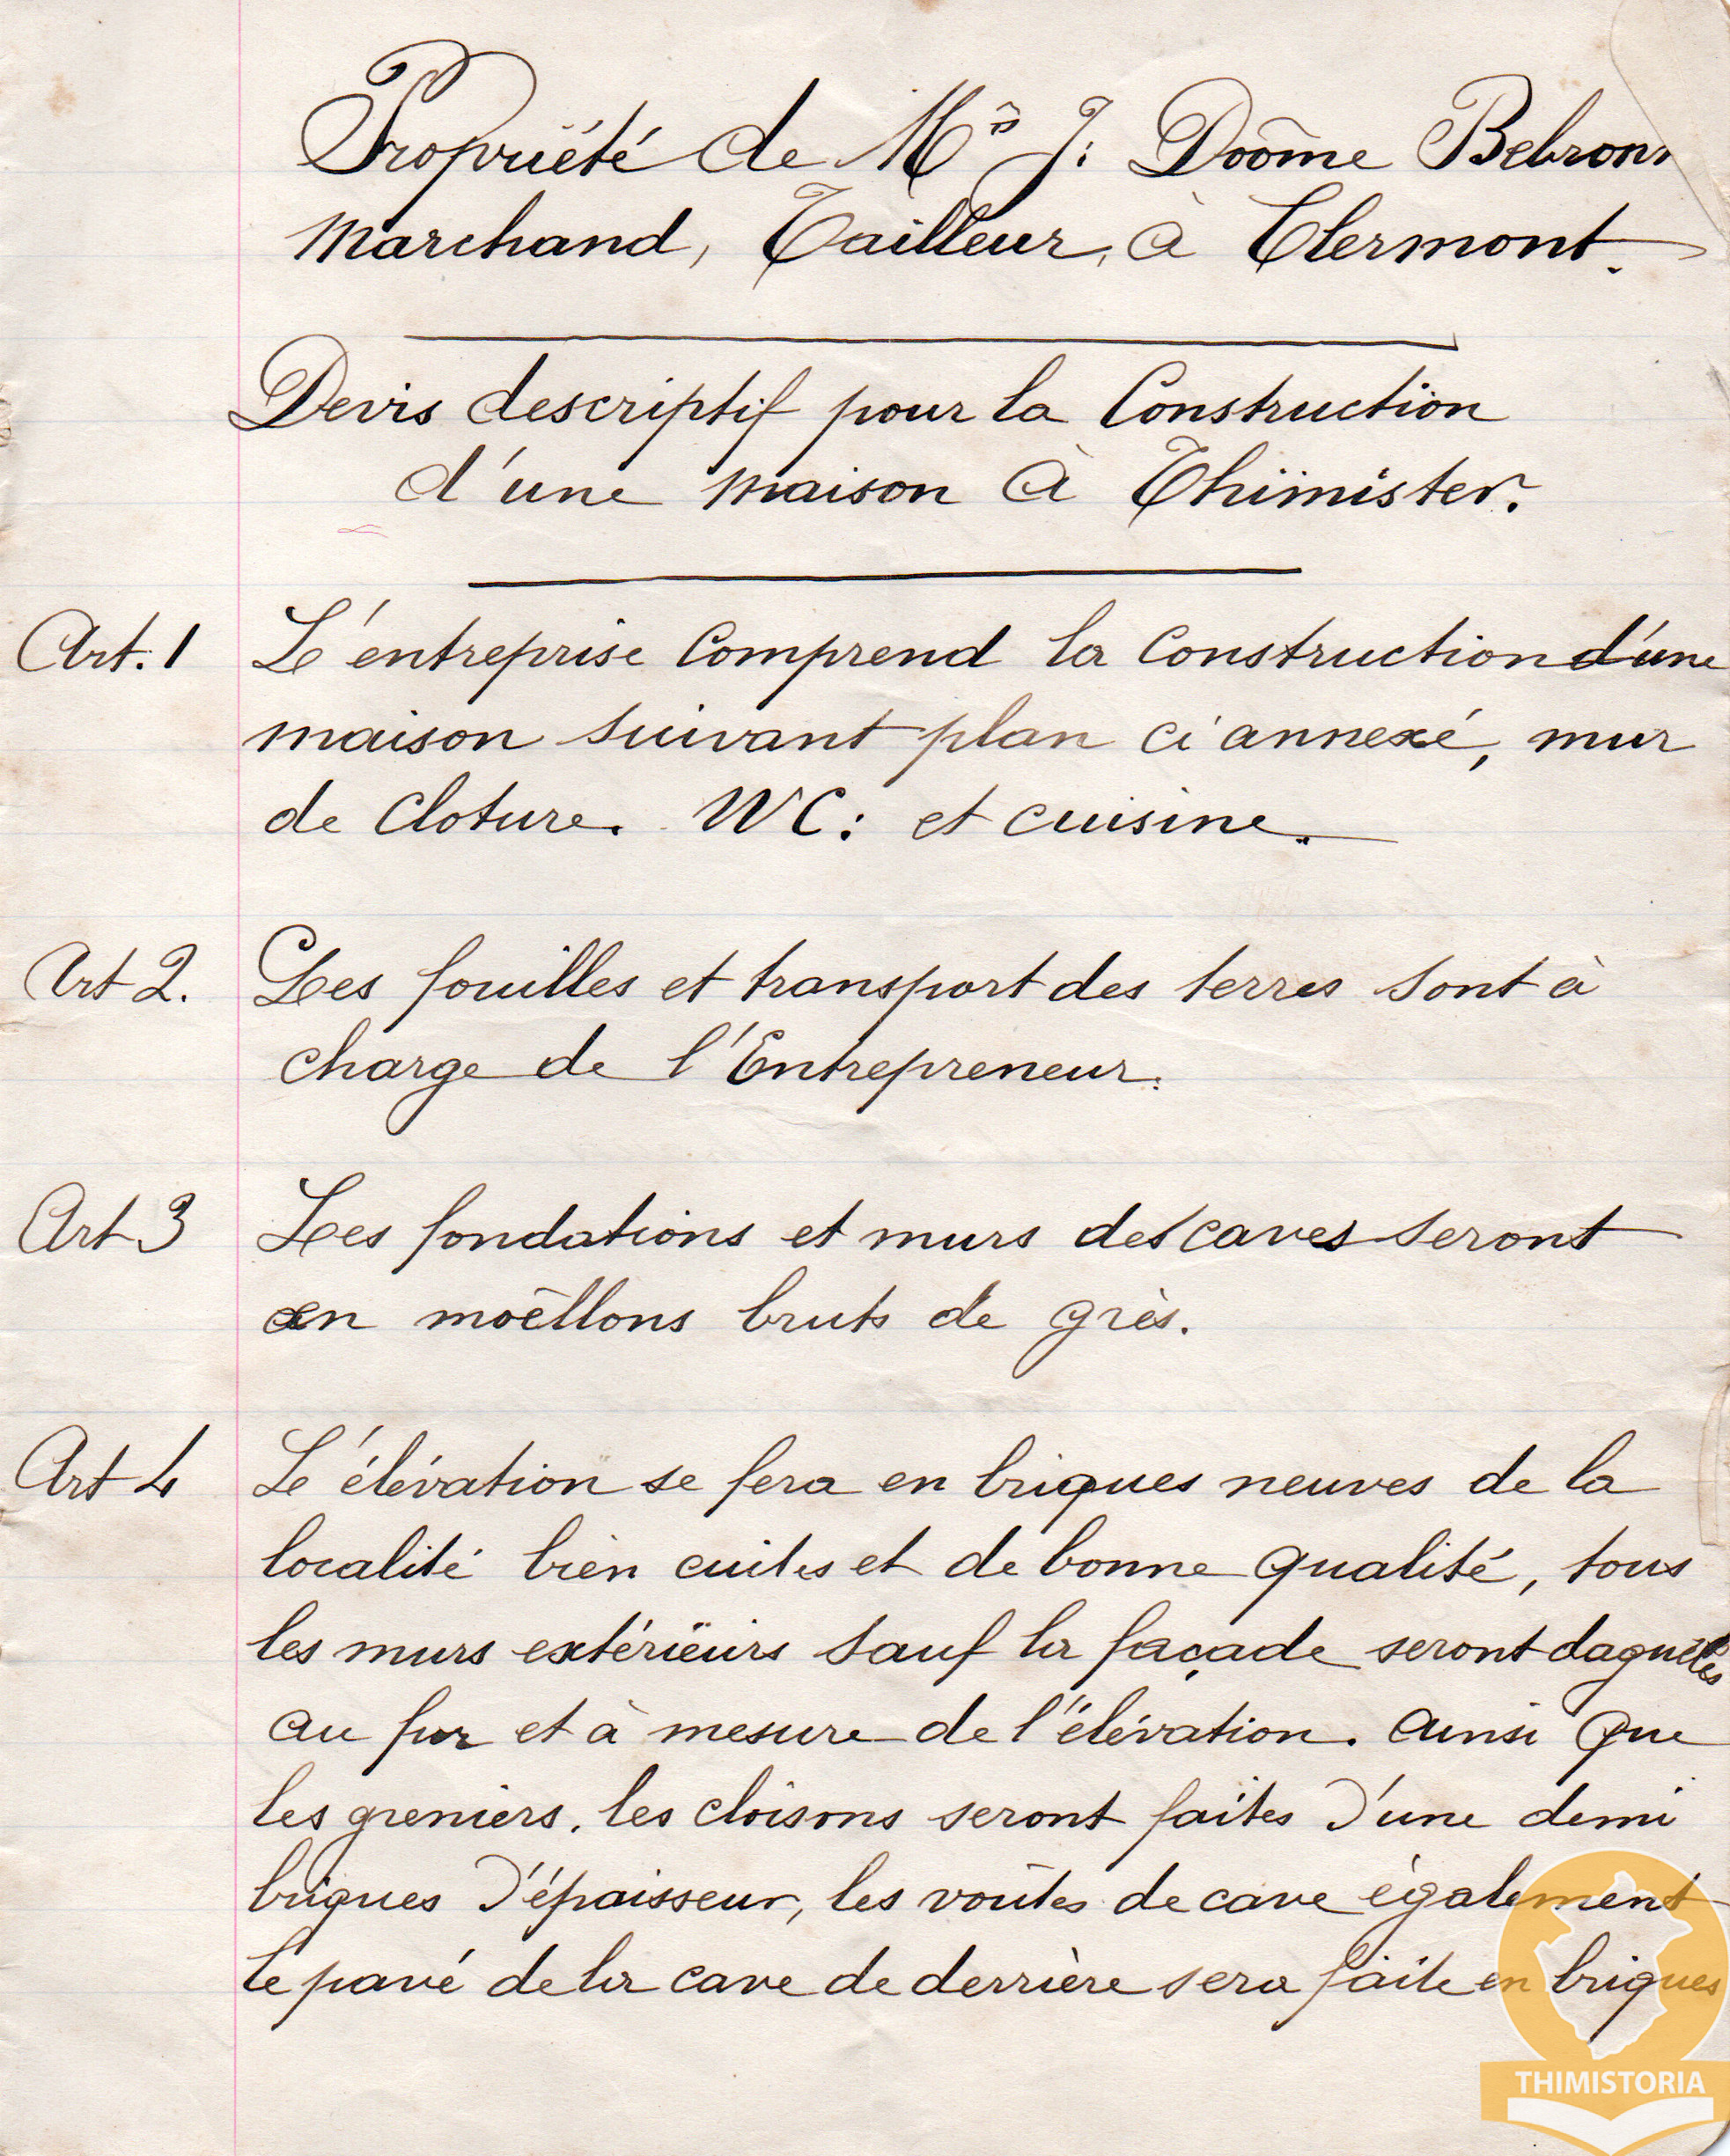 Propriété de Mr J: Doôme Bebronn
Marchand, Tailleur, à Clermont.
Devis descriptif pour la Construction
d'une maison à Thimister.
Art. 1 L'entreprise Comprend la Construction d'une
maison suivant plan ci annexé, mur
de Cloture. WC: et cuisine.
Art 2. Les fouilles et transport des terres sont à
charge de l'Entrepreneur.
Art 3 Les fondations et murs des caves seront
en moëllons bruts de grès.
Art 4 L'élévation se fera en briques neuves de la
localité bien cuites et de bonne qualité, tous
les murs extérieurs sauf la façade seront
au fur et à mesure de l'élévation. ainsi que
les greniers. les cloisons seront faites d'une demi
briques d'épaisseur, les voûtes de cave également
le pavé de la cave de derrière sera faite en briques
THIMISTORIA